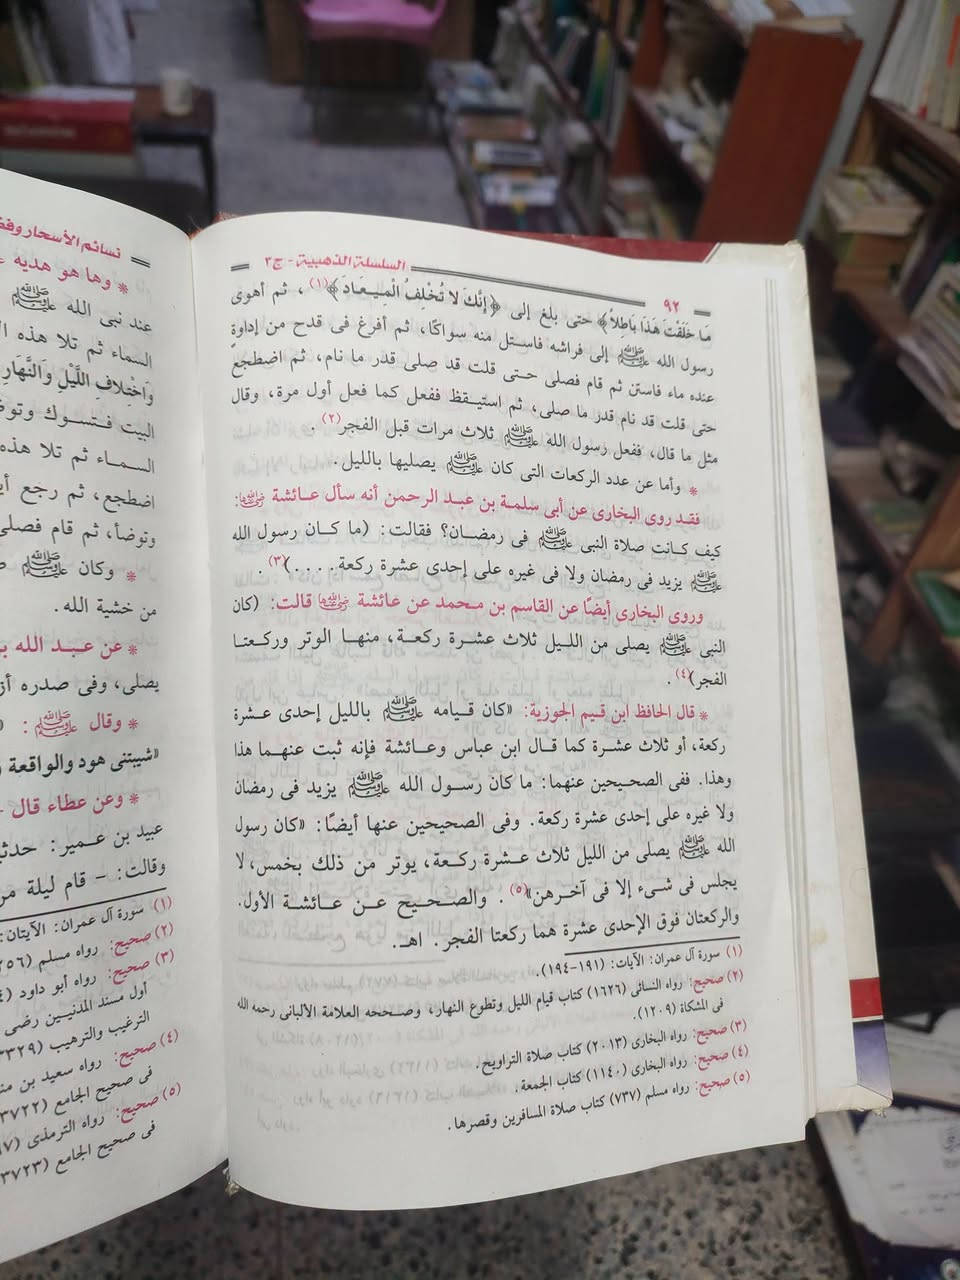 ٩٢ السلسلة الذهبية - ج٣
مَا خَلَقْتَ هَذَا بَاطِلاً﴾ حتى بلغ إلى ﴿إِنَّكَ لا تُخْلِفُ الْمِيعَادَ﴾(١)، ثم أهوى
رسول الله ﷺ إلى فراشه فاستل منه سواكًا، ثم أفرغ فى قدح من إداوةٍ
عنده ماء فاستن ثم قام فصلى حتى قلت قد صلى قدر ما نام، ثم اضطجع
حتى قلت قد نام قدر ما صلى، ثم استيقظ ففعل كما فعل أول مرة، وقال
مثل ما قال، ففعل رسول الله ﷺ ثلاث مرات قبل الفجر(٢).
* وأما عن عدد الركعات التى كان ﷺ يصليها بالليل.
فقد روى البخارى عن أبى سلمة بن عبد الرحمن أنه سأل عائشة رضي الله عنها:
كيف كانت صلاة النبى ﷺ فى رمضان؟ فقالت: (ما كان رسول الله
ﷺ يزيد فى رمضان ولا فى غيره على إحدى عشرة ركعة....)(٣).
وروى البخارى أيضًا عن القاسم بن محمد عن عائشة رضي الله عنها قالت: (كان
النبى ﷺ يصلى من الليل ثلاث عشرة ركعة، منها الوتر وركعتا
الفجر)(٤).
* قال الحافظ ابن قيم الجوزية: «كان قيامه ﷺ بالليل إحدى عشرة
ركعة، أو ثلاث عشرة كما قال ابن عباس وعائشة فإنه ثبت عنهما هذا
وهذا. ففى الصحيحين عنهما: ما كان رسول الله ﷺ يزيد فى رمضان
ولا غيره على إحدى عشرة ركعة. وفى الصحيحين عنها أيضًا: «كان رسول
الله ﷺ يصلى من الليل ثلاث عشرة ركعة، يوتر من ذلك بخمس، لا
يجلس فى شىء إلا فى آخرهن»(٥). والصحيح عن عائشة الأول.
والركعتان فوق الإحدى عشرة هما ركعتا الفجر. اهـ.
(١) سورة آل عمران: الآيات: (١٩١-١٩٤).
(٢) صحيح: رواه النسائى (١٦٢٦) كتاب قيام الليل وتطوع النهار، وصححه العلامة الألبانى رحمه الله
فى المشكاة (١٢٠٩).
(٣) صحيح: رواه البخارى (٢٠١٣) كتاب صلاة التراويح.
(٤) صحيح: رواه البخارى (١١٤٠) كتاب الجمعة.
(٥) صحيح: رواه مسلم (٧٣٧) كتاب صلاة المسافرين وقصرها.
نسائم الأسحار
* وها هو هديه
عند نبى الله ﷺ
السماء ثم تلا هذه
وَاخْتِلافِ اللَّيْلِ وَالنَّهَارِ
البيت فتسوك
السماء ثم تلا هذه
اضطجع، ثم رجع
وتوضأ، ثم قام فصلى
* وكان ﷺ
من خشية الله.
* عن عبد الله
يصلى، وفى صدره
* وقال ﷺ:
«شيبتنى هود والواقعة
* وعن عطاء قال
عبيد بن عمير:
وقالت: - قام ليلة
(١) سورة آل عمران: الآيتان:
(٢) صحيح: رواه مسلم
(٣) صحيح: رواه أبو داود
أول مسند المدنيين رضى
الترغيب والترهيب
(٤) صحيح: رواه سعيد بن
فى صحيح الجامع (٣٧٢٢
(٥) صحيح: رواه الترمذى
فى صحيح الجامع (٣٧٢٣